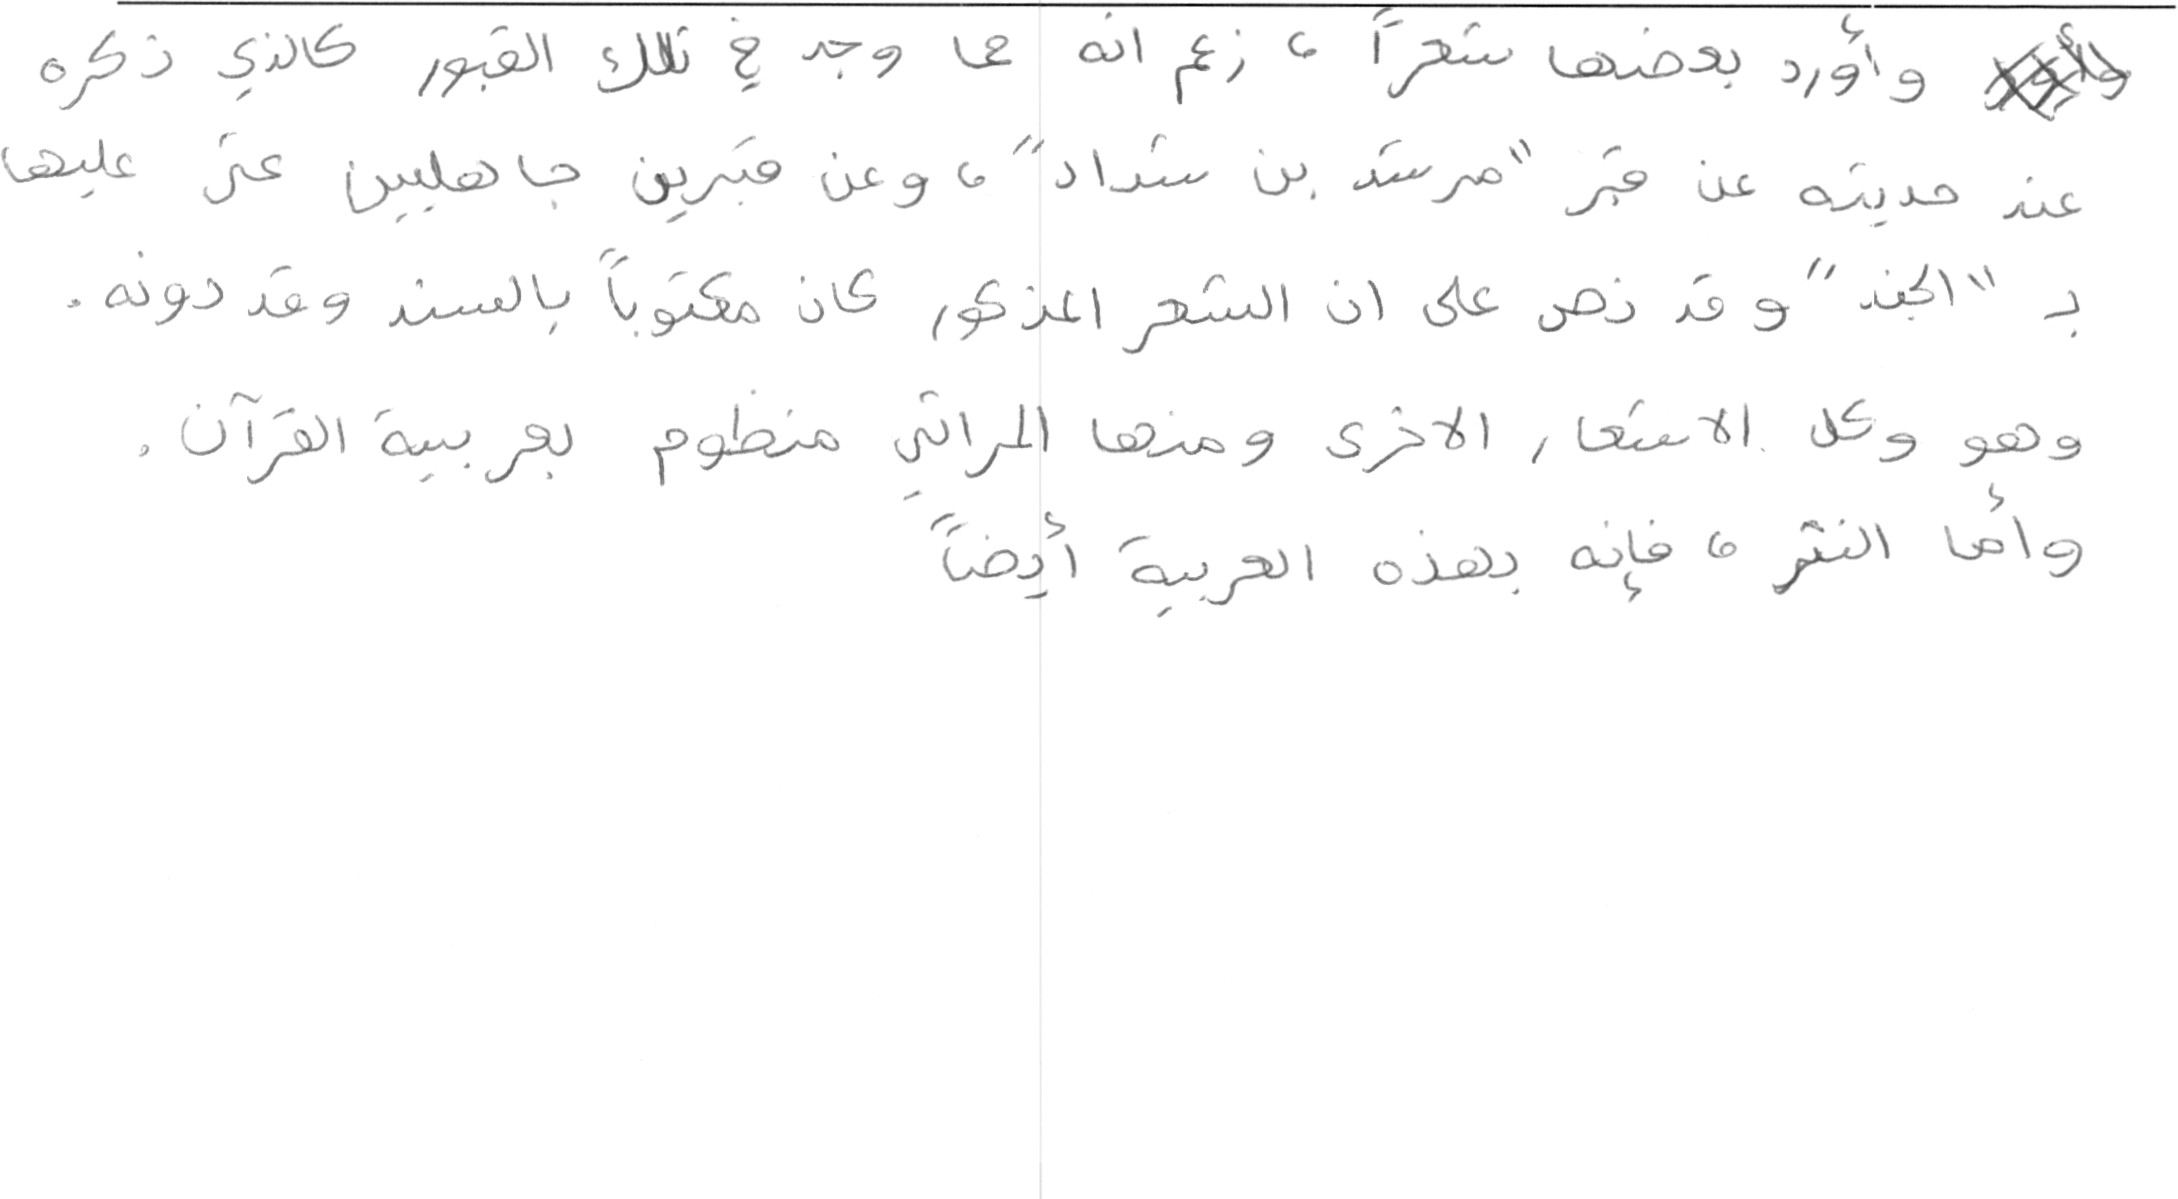 وأورد بعضها شعراً ، زعم انه مما وجد في تلك القبور كالذي ذكره
عند حديثه عن قبر "مرشد بن شداد" ، وعن قبرين جاهليين عثر عليها
بـ "الجند" وقد نص على ان الشعر المذكور كان مكتوباً بالمسند وقد دونه.
وهو وكل الاشعار الاخرى ومنها المراثي منظوم بعربية القرآن .
وأما النثر ، فإنه بهذه العربية أيضاً